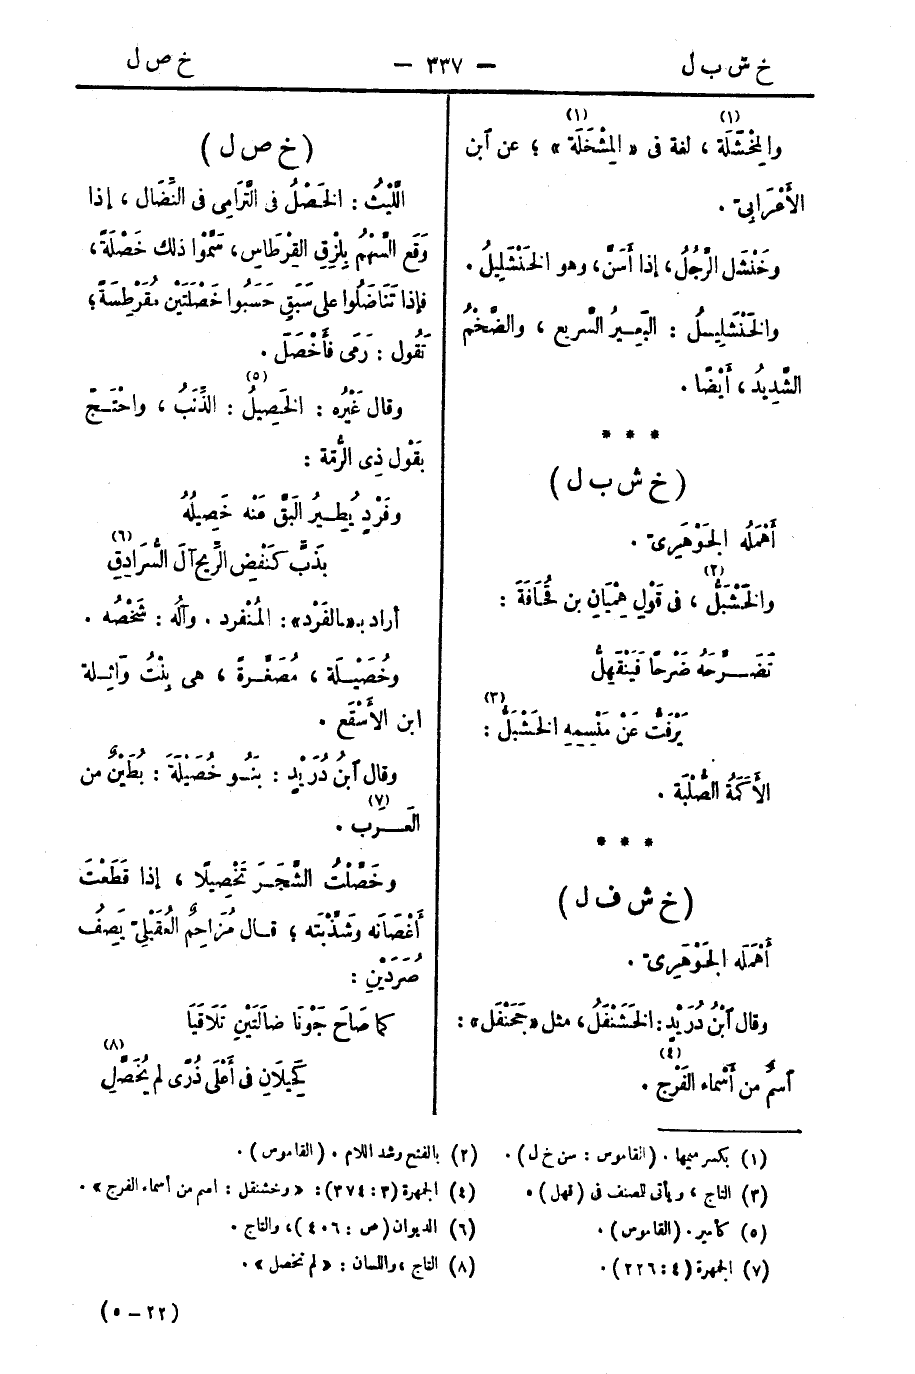 خ ش ب ل
— ٣٣٧ —
خ ص ل
(١) (١)
والمِخْشَلَة ، لغة فى « المِشْخَلَة » ؛ عن ٱبن
الأَعْرَابىّ .
وخَنْشَل الرَّجُلُ ، إذا أَسَنَّ ، وهو الخَنْشَلِيلُ .
والخَنْشَلِيلُ : البَعِيرُ السَّرِيع ، والضَّخْمُ
الشَّدِيدُ ، أَيْضًا .
* * *
( خ ش ب ل )
أَهْمَلَه الجَوْهَرِىّ .
(٢)
والخَشْبَلُّ ، فى قَوْلِ هِمْيَانِ بن قُحَافَةَ :
تَضْرَحُهُ ضَرْحًا فَيَنْقَهِلُّ
(٣)
يَرْفَتُّ عَنْ مَنْسِمِهِ الخَشْبَلُّ :
الأَكَمَةُ الصُّلْبَة .
* * *
( خ ش ف ل )
أَهْمَلَه الجَوْهَرِىّ .
وقال ٱبْنُ دُرَيْدٍ : الخَشَنْفَلُ ، مثل « جَحَنْفَل » :
(٤)
ٱسمٌ من أَسْماء الفَرْج .
( خ ص ل )
اللَّيْثُ : الخَصْلُ فى التَّرَامِى فى النِّضَال ، إذا
وَقَع السَّهْمُ بِلِزْقِ القِرْطَاس ، سَمَّوْا ذلك خَصْلَةً ،
فإذا تَنَاضَلُوا على سَبَقٍ حَسَبُوا خَصْلَتَيْن مُقَرْطِسَةً ؛
تَقُول : رَمَى فأَخْصَلَ .
(٥)
وقال غَيْرُه : الخَصِيلُ : الذَّنَبُ ، واحْتَـجّ
بقَوْل ذِى الرُّمّة :
وفَرْدٍ يُطِيرُ البَقَّ عنه خَصِيلُهُ
(٦)
بذَبٍّ كنَفْضِ الرِّيحِ آلَ السُّرَادِقِ
أراد بـ«ـالفَرْد» : المُنْفَرد . وآلُه : شَخْصُه .
وخُصَيْلَة ، مُصَغَّرةً ، هى بِنْتُ وَاثِلة
ابن الأَسْقَع .
وقال ٱبنُ دُرَيْدٍ : بَنُو خُصَيْلَةَ : بُطَيْنٌ من
(٧)
العَـرَب .
وخَصَّلْتُ الشَّجَرَ تَخْصِيلًا ، إذا قَطَعْتَ
أَغْصَانَه وشَذَّبْتَه ؛ قال مُزَاحِمٌ العُقَيْلىّ يَصِفُ
صُرَدَيْنِ :
كما صَاحَ جَوْنَا ضالَتَيْنِ تَلَاقَيَا
(٨)
كَحِيلَانِ فى أَعْلَى ذُرًى لم يُخَصَّلِ
(١) بكسر ميمها . (القاموس : س خ ل) .
(٢) بالفتح وشد اللام . (القاموس) .
(٣) التاج ، ويأتى للصنف فى (قهل) .
(٤) الجمهرة (٣ : ٣٧٤) : « وخشنفل : اسم من أسماء الفرج » .
(٥) كأمير . (القاموس) .
(٦) الديوان (ص : ٤٠٦) ، والتاج .
(٧) الجمهرة (٤ : ٢٢٦) .
(٨) التاج ، واللسان : « لم تخصل » .
(٢٢ – ٥)